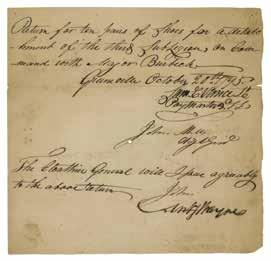 Return for ten pair of Shoes for a detach
ment of the third Sublegion on Com
mand with Major Burbeck
Greenville October 20th 95
Paymaster 3d S L
John Mills
Adjt Genl
The Cloathier General will Issue agreeably
to the above return
Anty Wayne